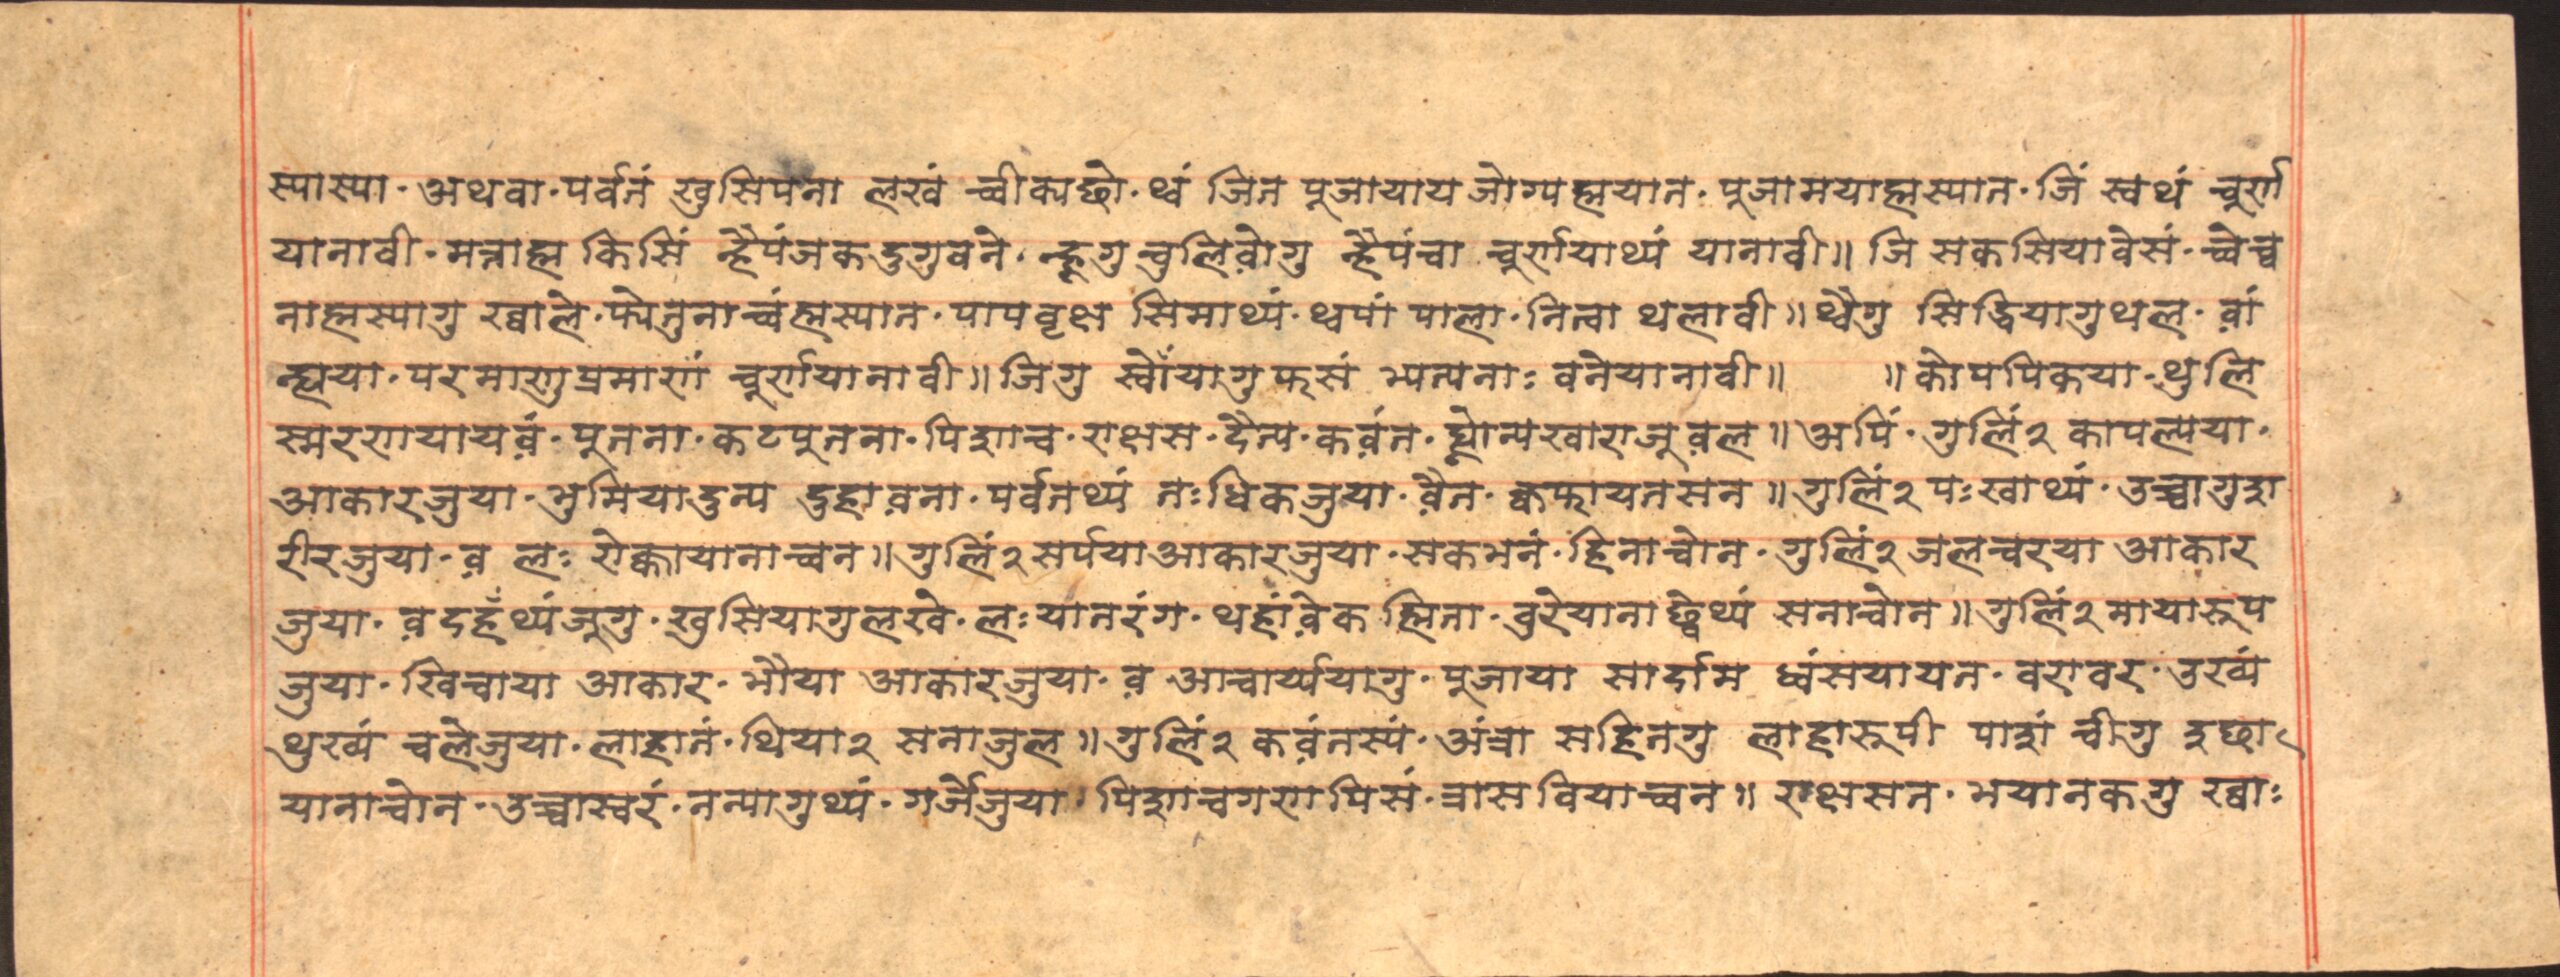 स्यास्या · अथवा · पर्वतं खुसिपना लखं च्वीकाछो · थ्वं जिन पूजायाय जोग्यह्मयात · पूजामयाह्मस्यात · जिं स्वथं चूर्ण
यानावी · मन्नाह्म किसिं न्हैपंजकदुगुबने · न्हूगु चुलिव़ोगु न्हैपंचा चूर्णयाथ्यं यानावी॥ जि सकसियावेसं · च्वेच्व
नाह्मस्यागु ख्वाले · फ्येतुनाच्वंह्मस्यात · पापवृक्ष सिमाथ्यं · थ्वपां पाला · नित्वा थलावी॥ थ्वैगु सिद्धियागुथल · व़ां
न्ह्यया · परमाणुप्रमाणं चूर्णयानावी॥ जिगु स्वोंयागु फसं भ्यत्पनाः बनेयानावी॥ ॥कोपपिकया · थुलि
स्मरणयायव़ं · पूतना · कटपूतना · पिशाच · राक्षस · दैत्य · कव़ंत · घ्रोत्यखाराजूव़ल॥ अपिं · गुलिं२ कापल्यया ·
आकारजुया · भुमियादुत्य दुहाव़ना · पर्वतथ्यं तःधिकजुया · व़ैत · क्वफायतसन॥ गुलिं२ पःखाथ्यं · उच्चागुश
रीरजुया · व़ लः रोक्कायानाच्वन॥ गुलिं२ सर्पयाआकारजुया · सकभनं · हिनाच्वोन · गुलिं२ जलचरया आकार
जुया · व़ दहँथ्यंजूगु · खुसियागुलखे · लःयातरंग · थहांव़ेक ह्मिना · वुरेयानाछ्वेथ्यं सनाच्वोन॥ गुलिं२ मायारूप
जुया · खिचाया आकार · भौया आकारजुया · व़ आचार्य्ययागु · पूजाया सार्दाम ध्वंसयायत · वरावर · उख्यं
थुख्यं चलेजुया · लाहातं · थिया२ सनाजुल॥ गुलिं२ कव़ंतस्यं · अंत्रा सहितगु लाहारूपी पाशं चीगु दुछा
यानाच्वोन · उच्चास्वरं · नन्यागुथ्यं · गर्जेजुया · पिशाचगणपिसं · त्रास वियाच्वन॥ राक्षसन · भयानकगु ख्वाः